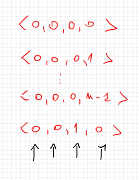 <0,0,0,0>
<0,0,0,1>
⋮
<0,0,0,n-1>
<0,0,1,0>
↑ ↑ ↑ ↑